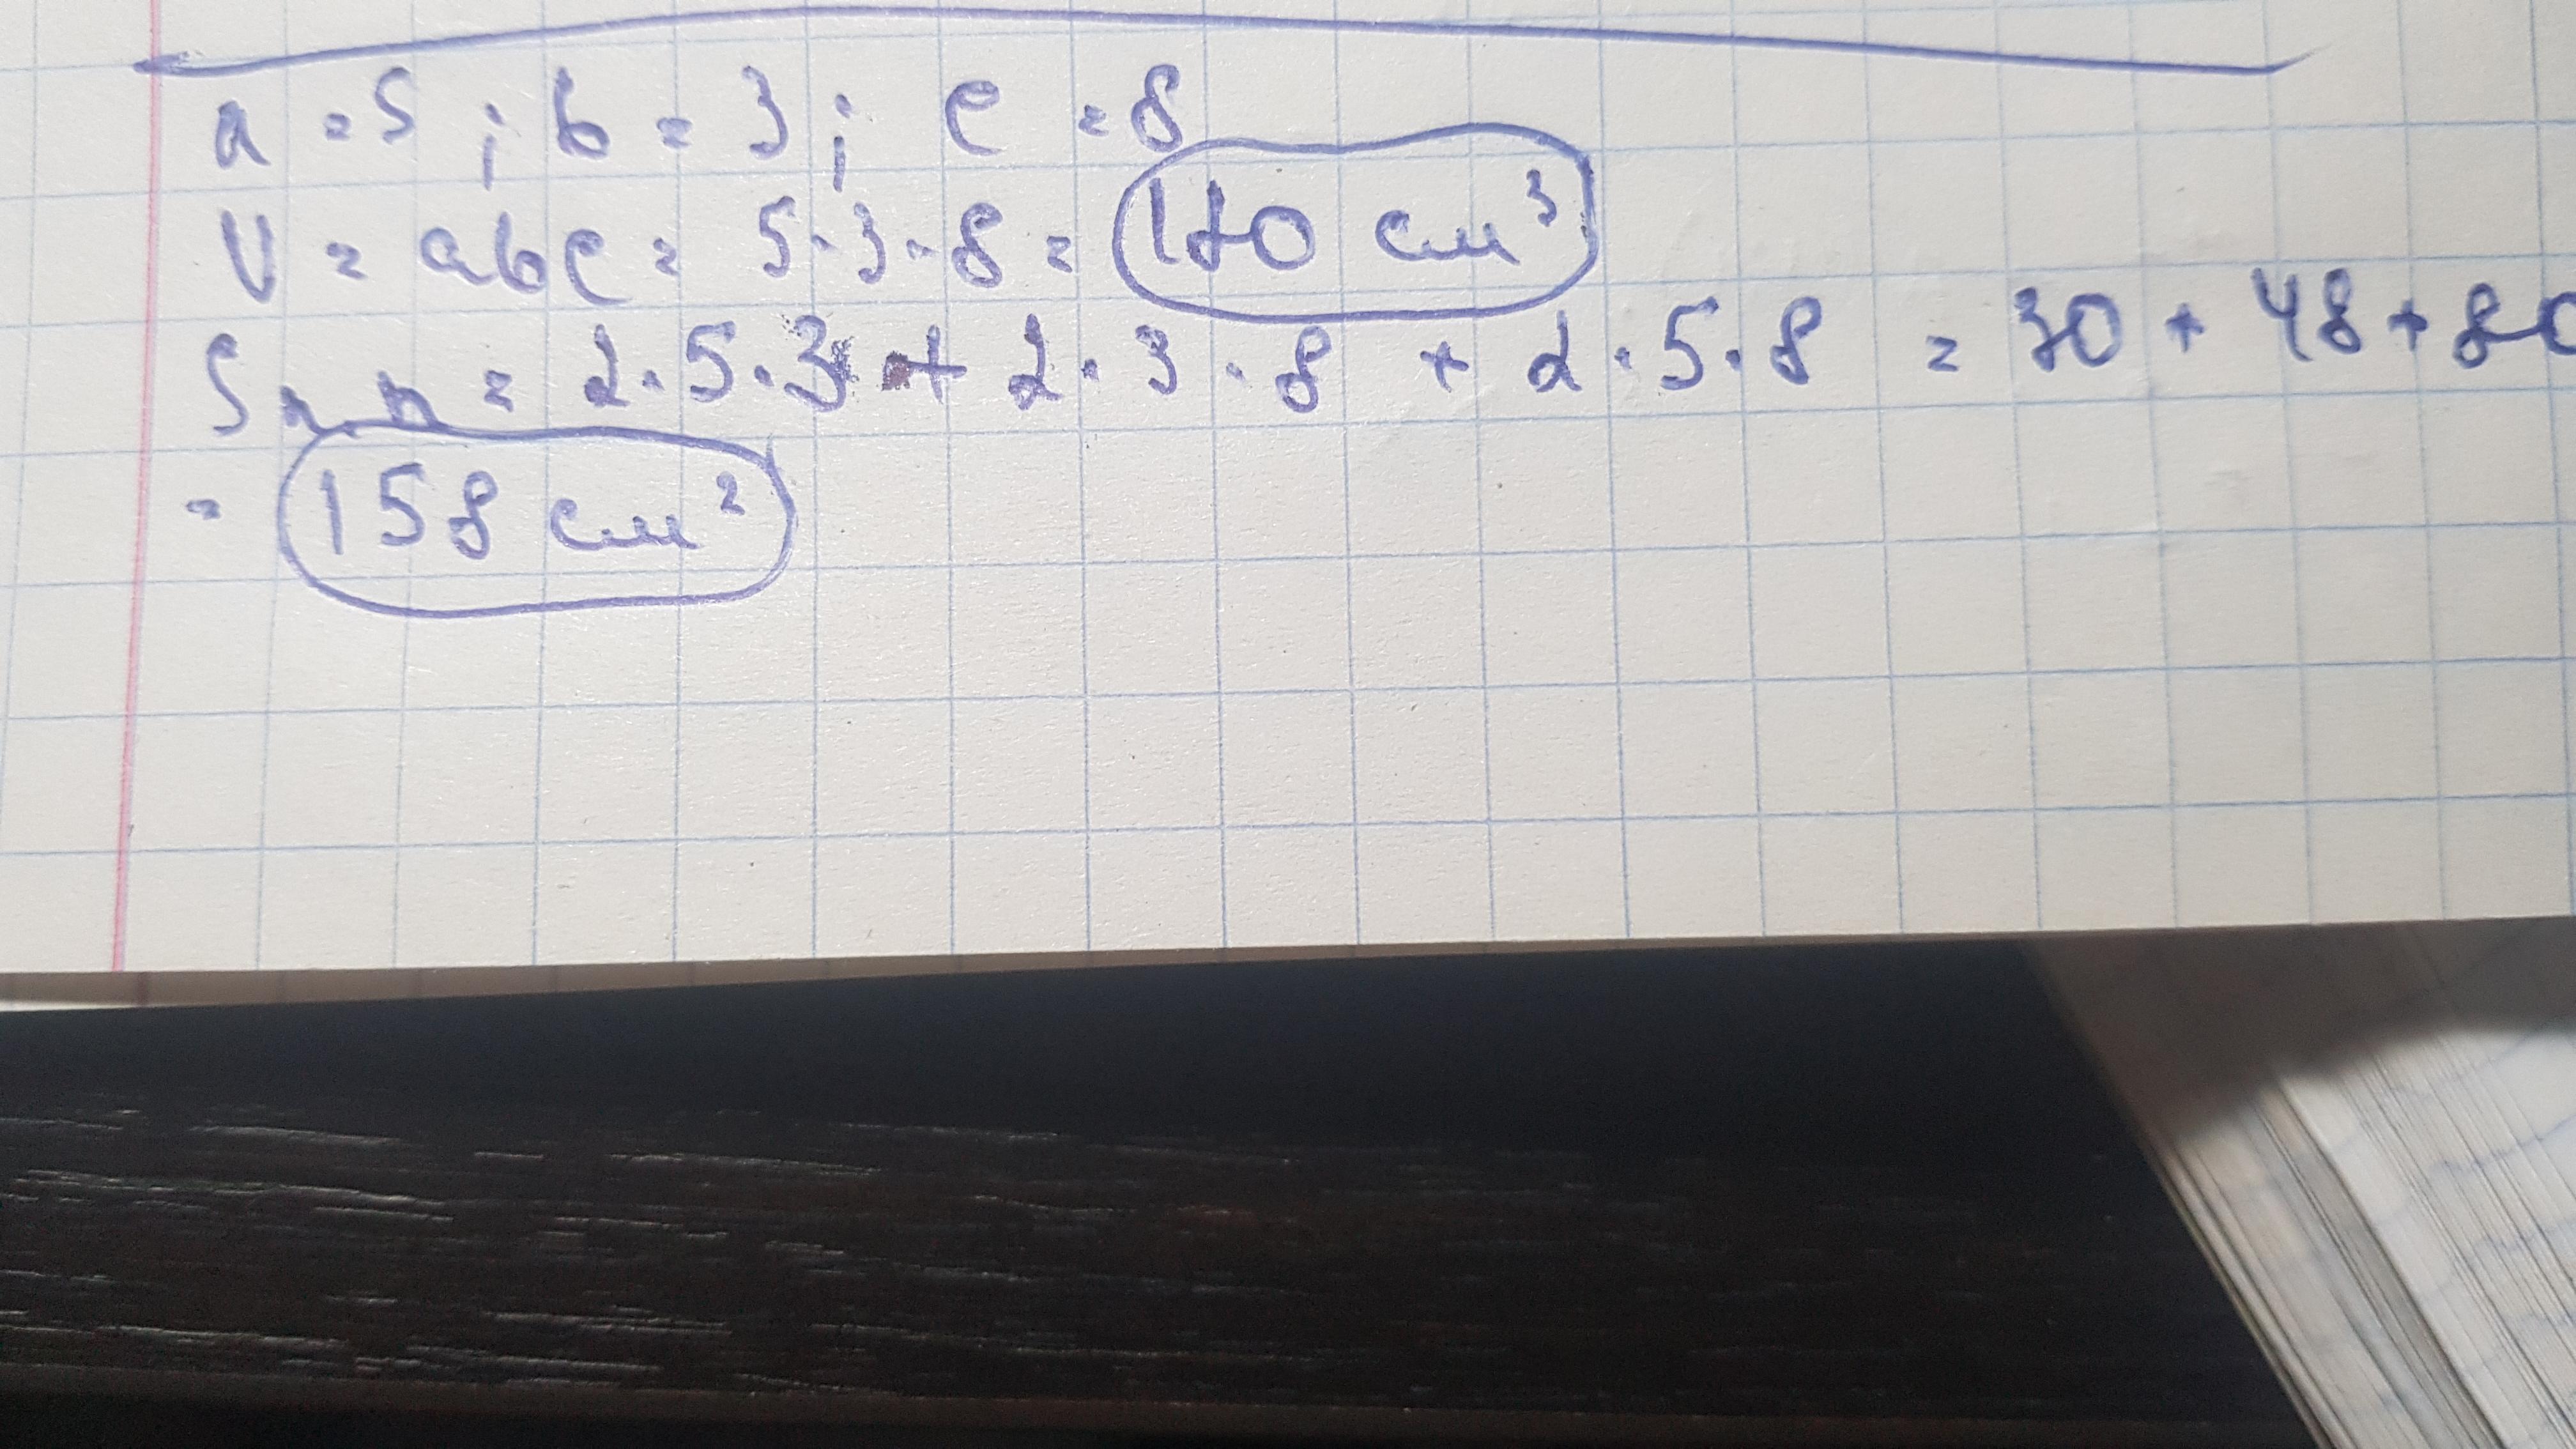 a = 5 ; b = 3 ; c = 8
V = abc = 5·3·8 = 120 см³
Sп.п = 2·5·3 + 2·3·8 + 2·5·8 = 30 + 48 + 80
= 158 см²